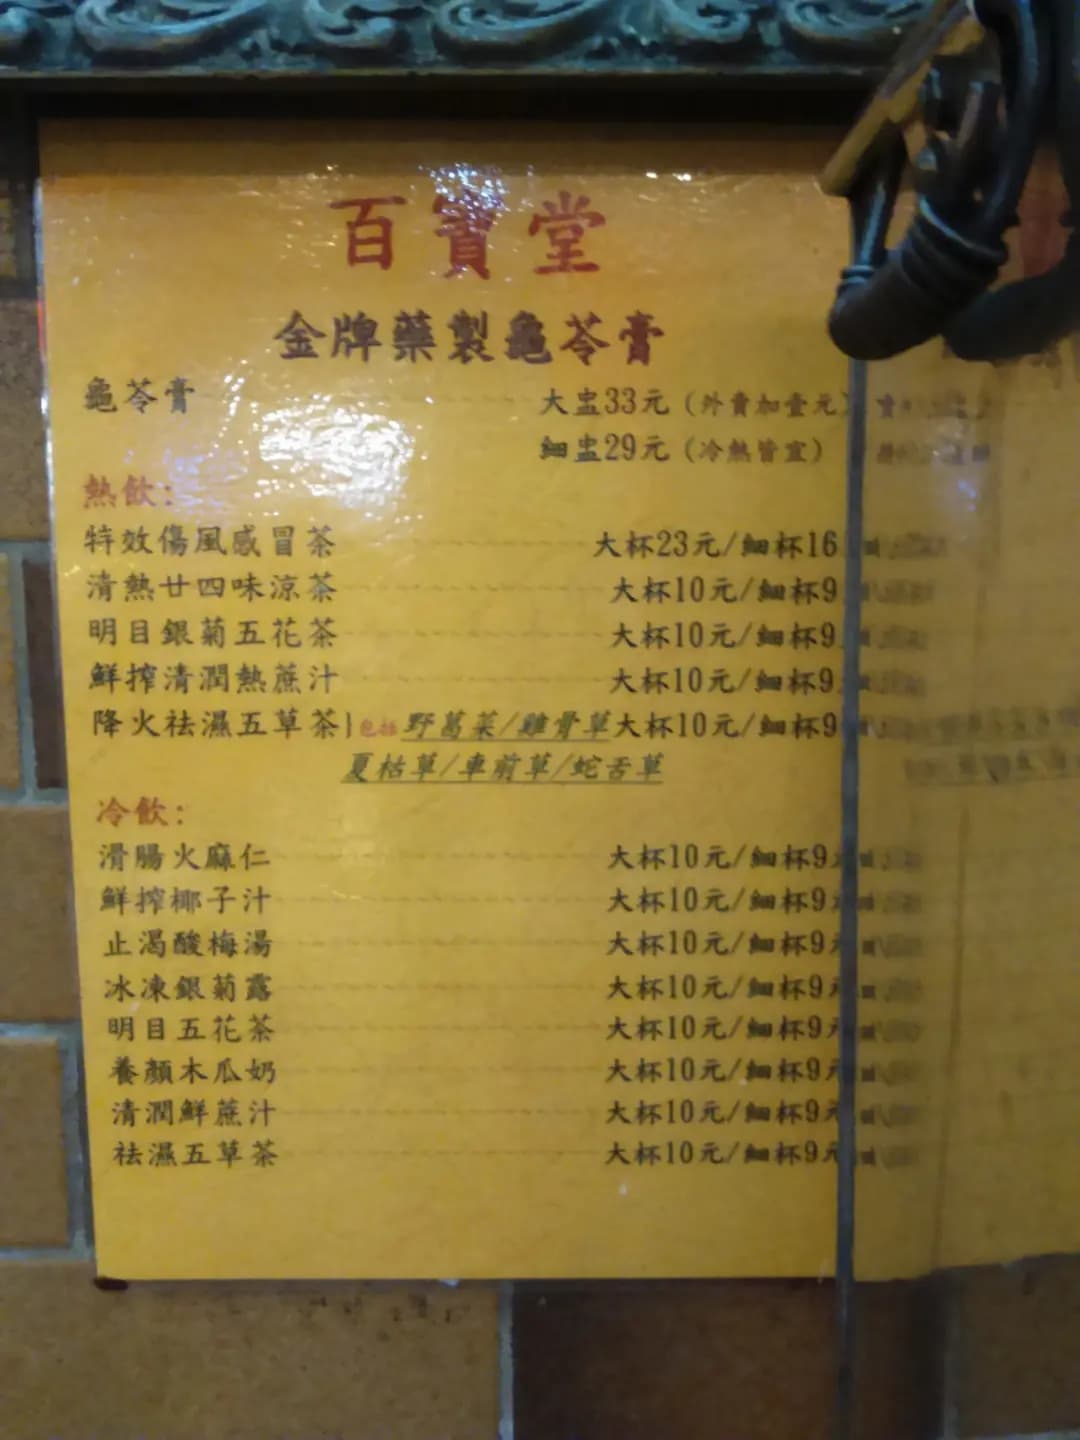 百寶堂
金牌藥製龜苓膏
龜苓膏 大盅33元（外賣加壹元）
細盅29元（冷熱皆宜）
熱飲:
特效傷風感冒茶 大杯23元/細杯16
清熱廿四味涼茶 大杯10元/細杯9
明目銀菊五花茶 大杯10元/細杯9
鮮搾清潤熱蔗汁 大杯10元/細杯9
降火祛濕五草茶 包括 野葛菜/雞骨草 大杯10元/細杯9
夏枯草/車前草/蛇舌草
冷飲:
滑腸火麻仁 大杯10元/細杯9元
鮮搾椰子汁 大杯10元/細杯9元
止渴酸梅湯 大杯10元/細杯9元
冰凍銀菊露 大杯10元/細杯9元
明目五花茶 大杯10元/細杯9元
養顏木瓜奶 大杯10元/細杯9元
清潤鮮蔗汁 大杯10元/細杯9元
祛濕五草茶 大杯10元/細杯9元